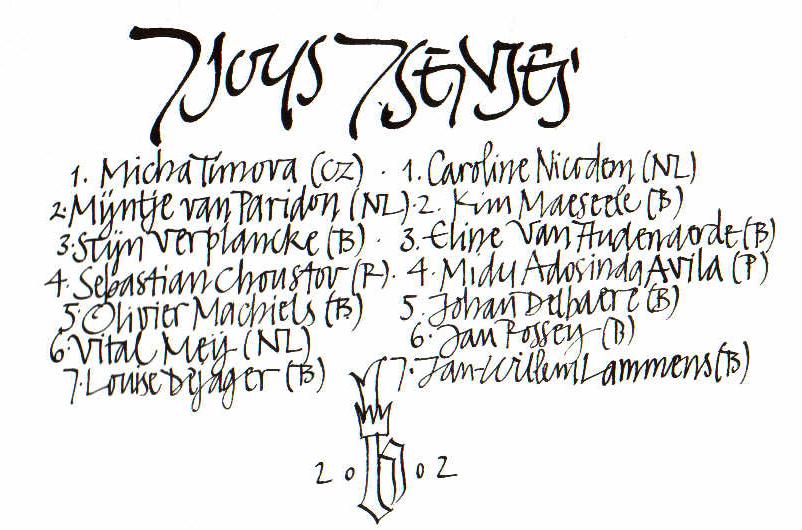 7Joys 7Senses
1. Micha Timova (CZ) ·
2. Mijntje van Paridon (NL) ·
3. Stijn Verplancke (B) ·
4. Sebastian Choustov (R) ·
5. Olivier Machiels (B)
6. Vital Meij (NL)
7. Louise Dejager (B)
1. Caroline Nicodem (NL)
2. Kim Maeseele (B)
3. Eline Van Audenaorde (B)
4. Midu Adosinda Avila (P)
5. Johan Delbaere (B)
6. Jan Possey (B)
7. Jan-Willem Lammens (B)
2002